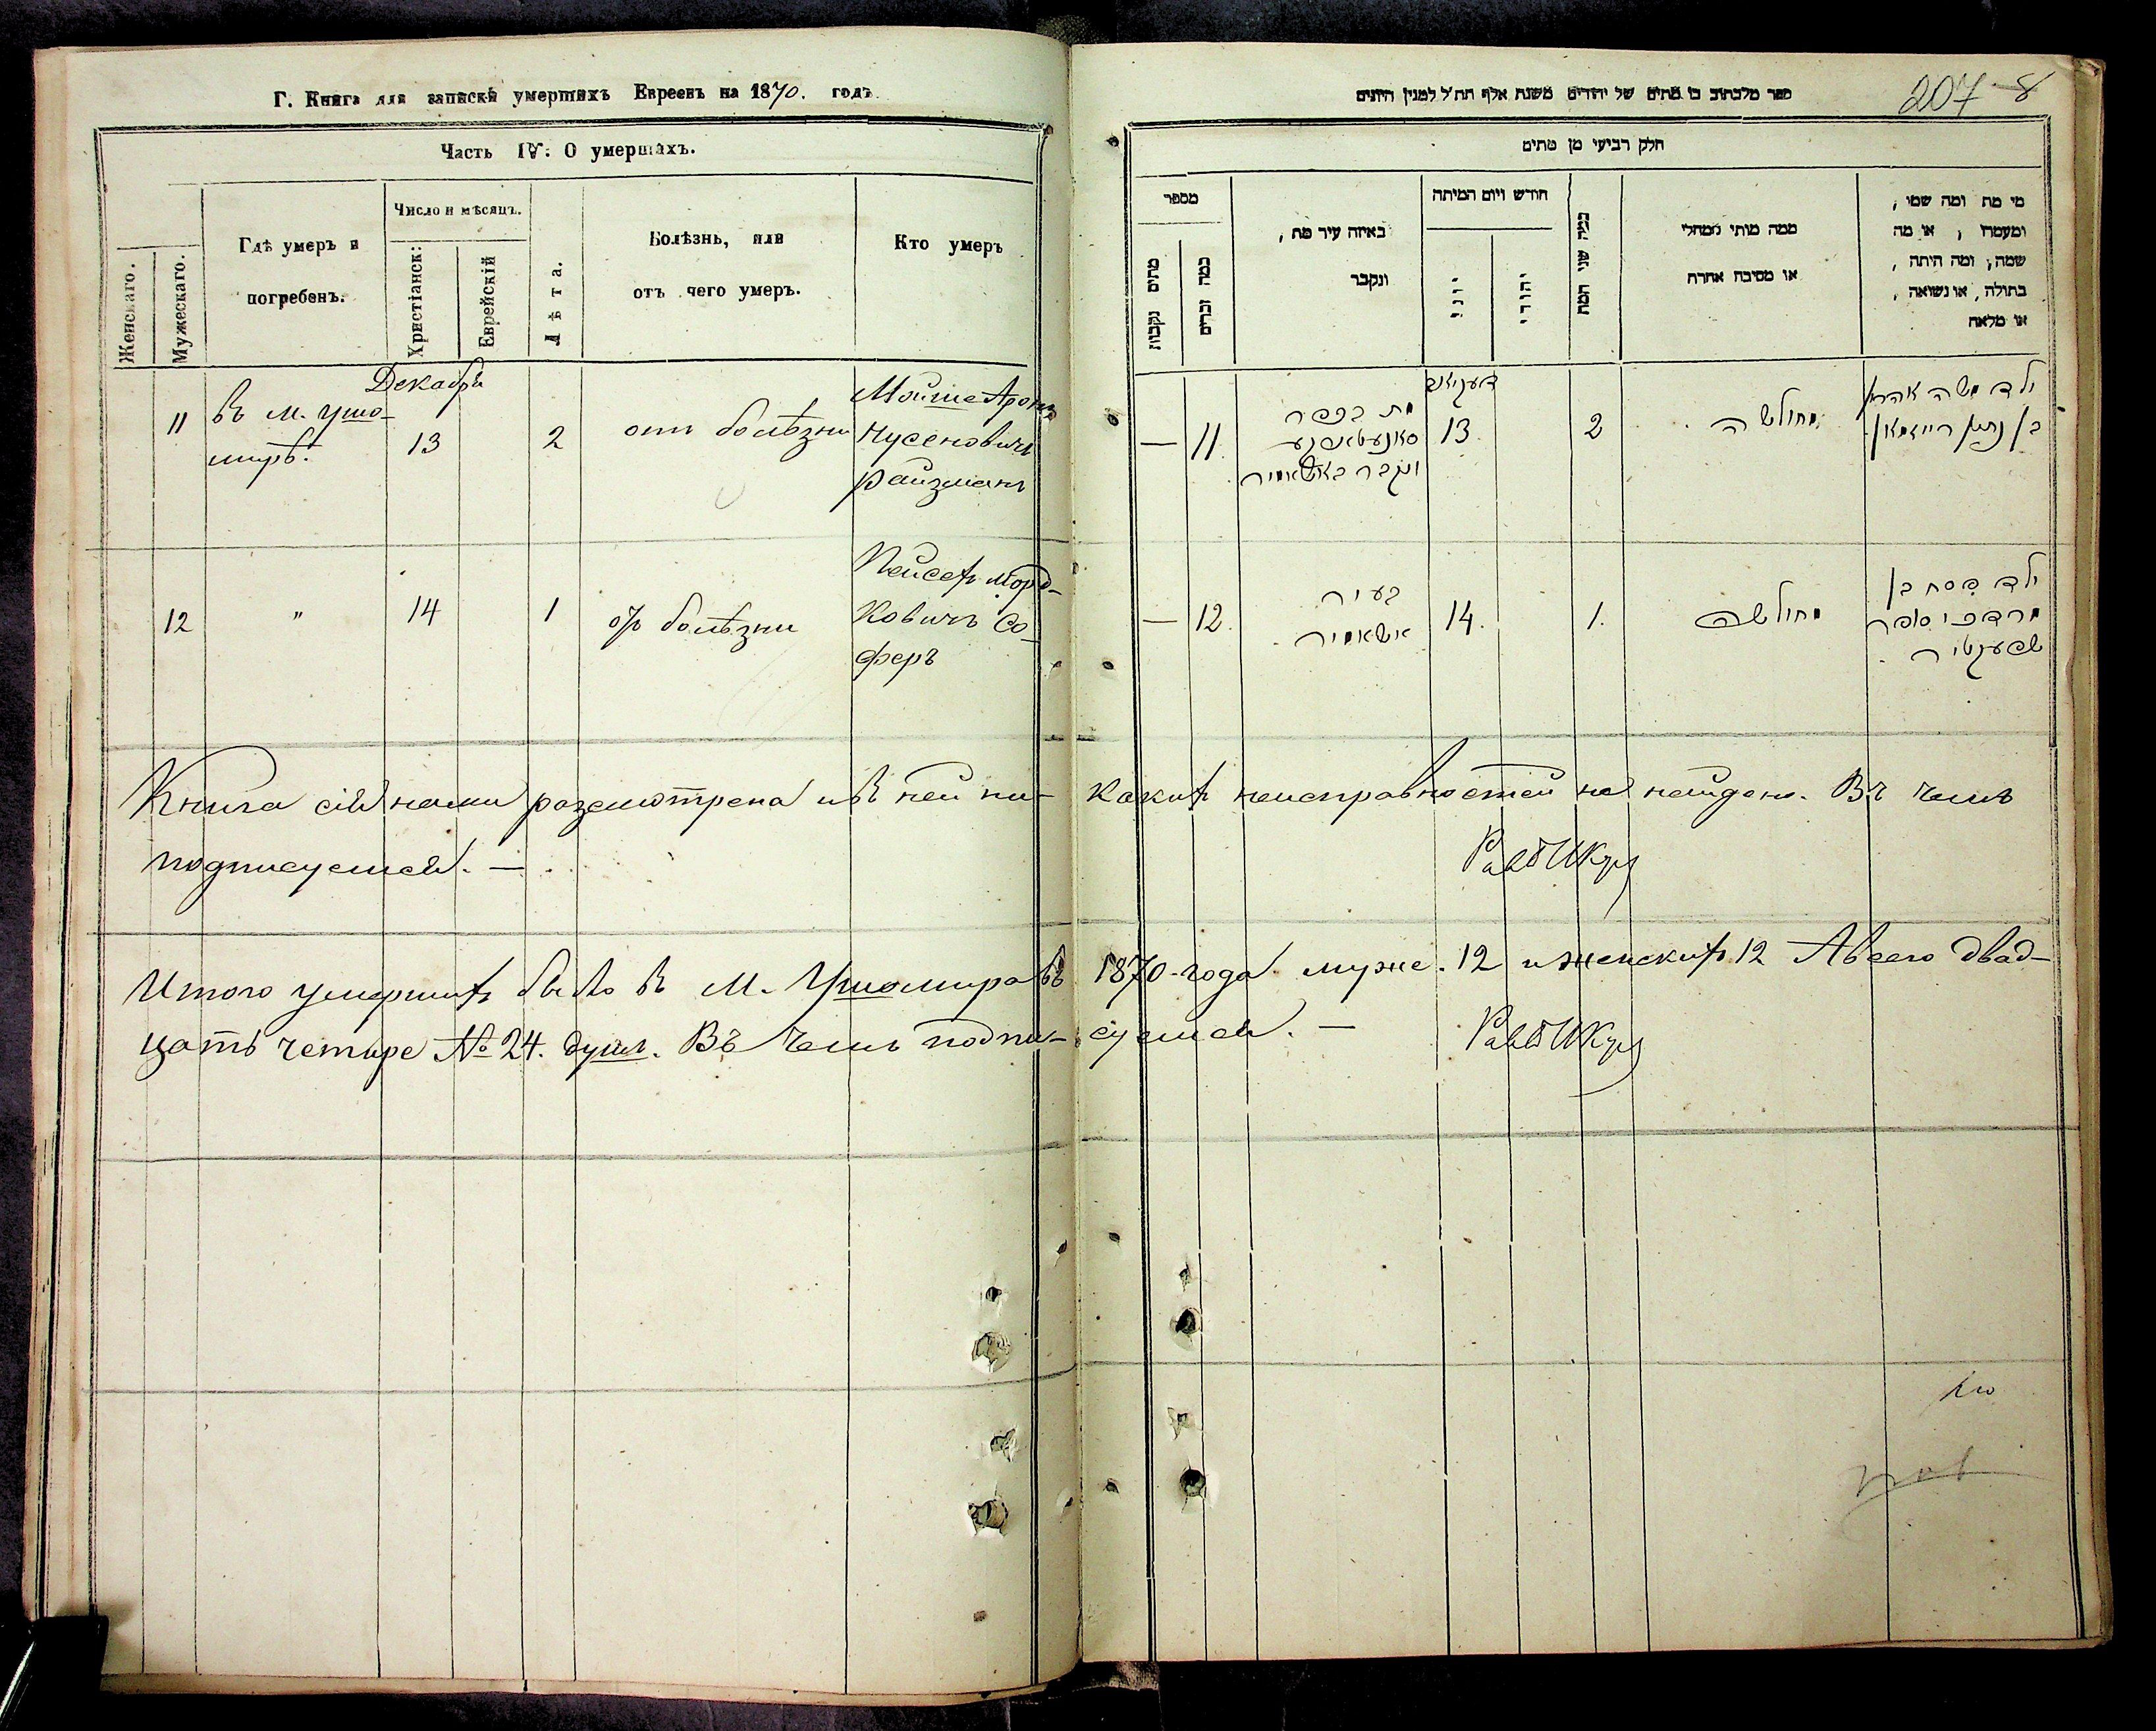 Г. Книга для записки умершихъ Евреевъ на 1870. годъ
Часть IV. О умершихъ.
Женскаго.
Мужескаго.
Гдѣ умеръ и
погребенъ.
Число и мѣсяцъ.
Христіанск:
Еврейскій
Лѣта.
Болѣзнь, или
отъ чего умеръ.
Кто умеръ
Декабрь
11
въ м. Ушо-
мирѣ.
13
2
отъ болѣзни
Мойше Аронъ
Нусеновичъ
Райзманъ
12
"
14
1
отъ болѣзни
Пейсехъ Морд-
ковичъ Со-
феръ
ספר מלכתוב בו מתים של יהודים משנת אלף תת״ל למנין היונים
207
8
חלק רביעי מן מתים
מספר
מתים נקבות
כמה זכרים
באיזה עיר מת,
ונקבר
חודש ויום המיתה
יווני
יהודי
כמה שני המת
ממה מותי ממחלי
או מסיבה אחרת
מי מת ומה שמו,
ומעמדו, או מה
שמה, ומה היתה,
בתולה, או נשואה,
או מלאה
—
11.
מת בכפר
ונקבר באושאמיר
13
2
מחולשה
ילד משה אהרן
בן נתן רייזמאן
—
12.
בעיר
אושאמיר.
14.
1.
מחולשה
ילד פסח בן
מרדכי סופר
Книга сія нами разсмотрена и въ ней ни- какихъ неисправностей не найдено. Въ чемъ
подписуемся. —
Итого умершихъ было въ М. Ушомира въ 1870-года муже. 12 и женскихъ 12 А всего двад-
цать четыре № 24. душъ. Въ чемъ подпи- суемся. —